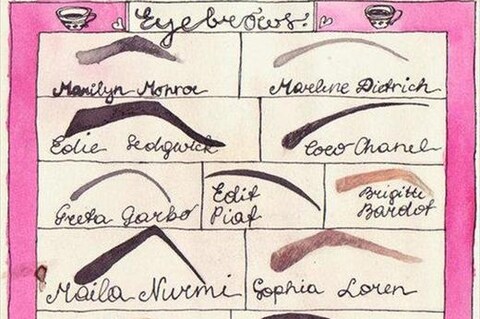 Eyebrows:
Marilyn Monroe
Marlene Dietrich
Edie Sedgwick
Coco Chanel
Greta Garbo
Edit
Piaf
Brigitte
Bardot
Maila Nurmi
Sophia Loren